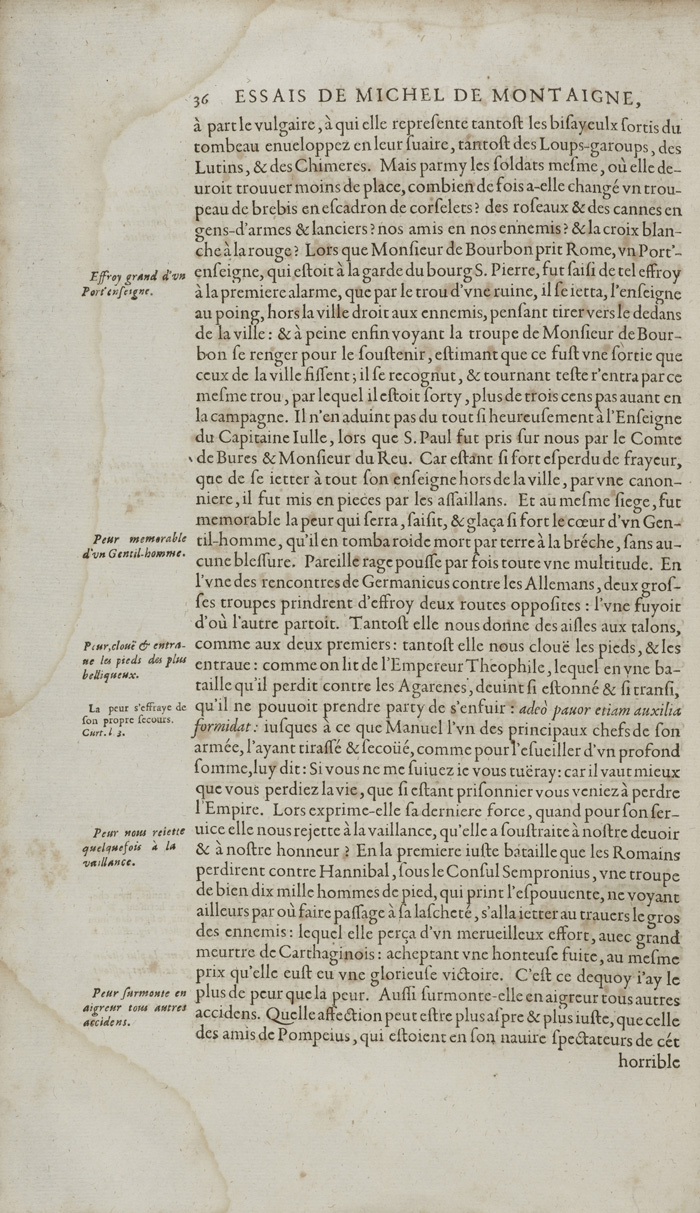 36 ESSAIS DE MICHEL DE MONTAIGNE,
à part le vulgaire, à qui elle repreſente tantoſt les biſayeulx ſortis du
tombeau enueloppez en leur ſuaire, tantoſt des Loups-garoups, des
Lutins, & des Chimeres. Mais parmy les ſoldats meſme, où elle de-
uroit trouuer moins de place, combien de fois a-elle changé vn trou-
peau de brebis en eſcadron de corſelets? des roſeaux & des cannes en
gens-d'armes & lanciers? nos amis en nos ennemis? & la croix blan-
che à la rouge? Lors que Monſieur de Bourbon prit Rome, vn Port'-
Effroy grand d'vn
Port'enſeigne.
enſeigne, qui eſtoit à la garde du bourg S. Pierre, fut ſaiſi de tel effroy
à la premiere alarme, que par le trou d'vne ruine, il ſe ietta, l'enſeigne
au poing, hors la ville droit aux ennemis, penſant tirer vers le dedans
de la ville: & à peine enfin voyant la troupe de Monſieur de Bour-
bon ſe renger pour le ſouſtenir, eſtimant que ce fuſt vne ſortie que
ceux de la ville fiſſent; il ſe recognut, & tournant teſte r'entra par ce
meſme trou, par lequel il eſtoit ſorty, plus de trois cens pas auant en
la campagne. Il n'en aduint pas du tout ſi heureuſement à l'Enſeigne
du Capitaine Iulle, lors que S. Paul fut pris ſur nous par le Comte
de Bures & Monſieur du Reu. Car eſtant ſi fort eſperdu de frayeur,
que de ſe ietter à tout ſon enſeigne hors de la ville, par vne canon-
niere, il fut mis en pieces par les aſſaillans. Et au meſme ſiege, fut
memorable la peur qui ſerra, ſaiſit, & glaça ſi fort le cœur d'vn Gen-
Peur memorable
d'vn Gentil-homme.
til-homme, qu'il en tomba roide mort par terre à la bréche, ſans au-
cune bleſſure. Pareille rage pouſſe par fois toute vne multitude. En
l'vne des rencontres de Germanicus contre les Allemans, deux groſ-
ſes troupes prindrent d'effroy deux routes oppoſites: l'vne fuyoit
d'où l'autre partoit. Tantoſt elle nous donne des aiſles aux talons,
Peur, clouë & entra-
ne les pieds des plus
belliqueux.
comme aux deux premiers: tantoſt elle nous clouë les pieds, & les
entraue: comme on lit de l'Empereur Theophile, lequel en vne ba-
taille qu'il perdit contre les Agarenes, deuint ſi eſtonné & ſi tranſi,
La peur s'effraye de
ſon propre ſecours.
Curt. l. 3.
qu'il ne pouuoit prendre party de s'enfuir: adeò pauor etiam auxilia
formidat: iuſques à ce que Manuel l'vn des principaux chefs de ſon
armée, l'ayant tiraſſé & ſecoüé, comme pour l'eſueiller d'vn profond
ſomme, luy dit: Si vous ne me ſuiuez ie vous tuëray: car il vaut mieux
que vous perdiez la vie, que ſi eſtant priſonnier vous veniez à perdre
l'Empire. Lors exprime-elle ſa derniere force, quand pour ſon ſer-
Peur nous reiette
quelquefois à la
vaillance.
uice elle nous rejette à la vaillance, qu'elle a ſouſtraite à noſtre deuoir
& à noſtre honneur? En la premiere iuſte bataille que les Romains
perdirent contre Hannibal, ſous le Conſul Sempronius, vne troupe
de bien dix mille hommes de pied, qui print l'eſpouuente, ne voyant
ailleurs par où faire paſſage à ſa laſcheté, s'alla ietter au trauers le gros
des ennemis: lequel elle perça d'vn merueilleux effort, auec grand
meurtre de Carthaginois: acheptant vne honteuſe fuite, au meſme
prix qu'elle euſt eu vne glorieuſe victoire. C'eſt ce dequoy i'ay le
Peur ſurmonte en
aigreur tous autres
accidens.
plus de peur que la peur. Auſſi ſurmonte-elle en aigreur tous autres
accidens. Quelle affection peut eſtre plus aſpre & plus iuſte, que celle
des amis de Pompeius, qui eſtoient en ſon nauire ſpectateurs de cét
horrible